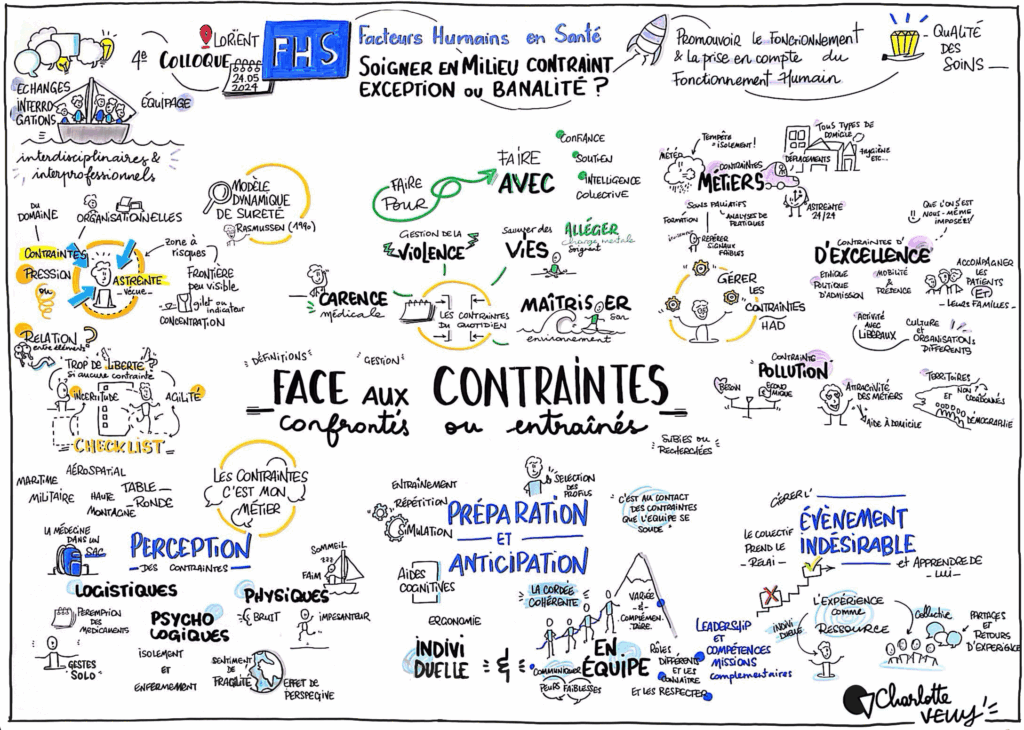 4e COLLOQUE
LORIENT
24.05
2024
FHS
Facteurs Humains en Santé
SOIGNER EN MILIEU CONTRAINT
EXCEPTION OU BANALITÉ ?
PROMOUVOIR LE FONCTIONNEMENT
& la prise en compte du
Fonctionnement Humain
QUALITÉ
DES
SOINS
ECHANGES
INTERRO
GATIONS
ÉQUIPAGE
interdisciplinaires &
interprofessionnels
DU
DOMAINE
ORGANISATIONNELLES
CONTRAINTES
PRESSION
OU
ASTREINTE
vécue
zone à
risques
FRONTIÈRE
peu visible
gilet ou
indicateur
CONCENTRATION
MODÈLE
DYNAMIQUE
DE SURETÉ
RASMUSSEN (1990)
RELATION ?
entre éléments
TROP DE LIBERTÉ ?
Si aucune contrainte
INCERTITUDE
AGILITÉ
CHECKLIST
FAIRE
POUR
FAIRE
AVEC
CONFIANCE
SOUTIEN
INTELLIGENCE
COLLECTIVE
GESTION DE LA
VIOLENCE
Sauver des
VIES
ALLÉGER
charge mentale
Soignant
CARENCE
médicale
LES CONTRAINTES
DU QUOTIDIEN
MAÎTRISER
son
environnement
MÉTÉO
Tempête
isolement!
CONTRAINTES
MÉTIERS
DÉPLACEMENTS
TOUS TYPES DE
DOMICILE
HYGIÈNE
ETC...
SOINS PALLIATIFS
FORMATION
ANALYSES DE
PRATIQUES
ASTREINTE
24/24
REPÉRER
SIGNAUX
FAIBLES
GÉRER
LES
CONTRAINTES
HAD
QUE L'ON S'EST
NOUS-MÊME
IMPOSÉES!
CONTRAINTES D'
D'EXCELLENCE
ETHIQUE
POLITIQUE
D'ADMISSION
MOBILITÉ
&
PRÉSENCE
ACCOMPAGNER
LES
PATIENTS
ET
LEURS FAMILLES
ACTIVITÉ
AVEC
LIBÉRAUX
CULTURE
et
ORGANISATIONS
DIFFERENTS
CONTRAINTE
POLLUTION
BESOIN
ECONO
MIQUE
ATTRACTIVITÉ
DES MÉTIERS
AIDE À DOMICILE
TERRITOIRES
ET
NON
COORDONNÉS
DÉMOGRAPHIE
DÉFINITIONS
GESTION
FACE AUX CONTRAINTES
confrontés ou entraînés
SUBIES OU
RECHERCHÉES
MARITIME
AÉROSPATIAL
MILITAIRE
HAUTE
MONTAGNE
TABLE
RONDE
LES CONTRAINTES
C'EST MON
MÉTIER
LA MÉDECINE
DANS UN
SAC
PERCEPTION
DES CONTRAINTES
LOGISTIQUES
PEREMPTION
DES
MEDICAMENTS
GESTES
SOLO
PSYCHO
LOGIQUES
ISOLEMENT
ET
ENFERMEMENT
SENTIMENT
DE
FRAGILITÉ
EFFET DE
PERSPECTIVE
SOMMEIL
zzz
FAIM
PHYSIQUES
BRUIT
IMPESANTEUR
ENTRAÎNEMENT
RÉPÉTITION
SIMULATION
SELECTION
DES
PROFILS
PRÉPARATION
ET
ANTICIPATION
"C'EST AU CONTACT
DES CONTRAINTES
QUE L'EQUIPE SE
SOUDE"
AIDES
COGNITIVES
ERGONOMIE
INDIVI
DUELLE
&
LA CORDÉE
COHÉRENTE
VARIÉE
&
COMPLÉMEN
TAIRE
EN
ÉQUIPE
COMMUNIQUER
PEURS FAIBLESSES
RÔLES
DIFFÉRENTS
ET LES
CONNAÎTRE
ET LES RESPECTER
LEADERSHIP
ET
COMPÉTENCES
MISSIONS
complémentaires
GÉRER L'
ÉVÈNEMENT
INDÉSIRABLE
et APPRENDRE DE
LUI
LE COLLECTIF
PREND LE
RELAI
L'EXPÉRIENCE
comme
RESSOURCE
INDIVI
DUELLE
Collective
PARTAGES
ET
RETOURS
D'EXPERIENCE
Charlotte